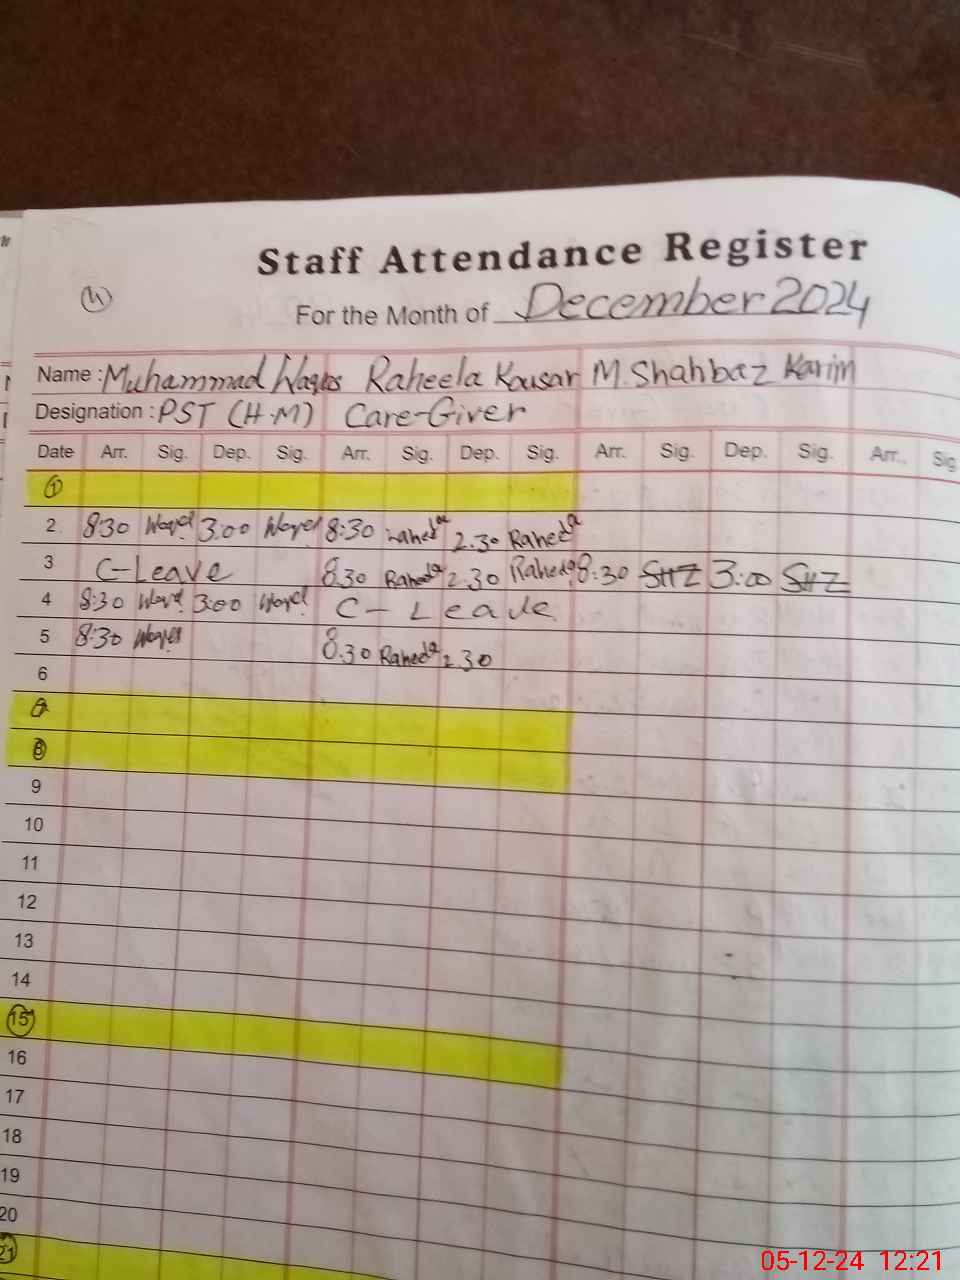 Staff Attendance Register
For the Month of December 2024
Name : Muhammad Waqas Raheela Kousar M. Shahbaz Karim
Designation : PST (H.M) Care-Giver
Date Arr. Sig. Dep. Sig. Arr. Sig. Dep. Sig. Arr. Sig. Dep. Sig. Arr. Sig
1
2. 8:30 3:00 8:30 2.30
3 C-Leave 8.30 2.30 8:30 SHZ 3:00 SHZ
4 8:30 3:00 C-Leave
5 8:30 8.30 2.30
6
7
8
9
10
11
12
13
14
15
16
17
18
19
20
21
05-12-24 12:21